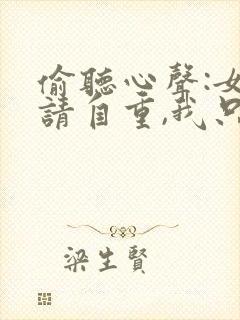 偷聽心聲:女
請自重,我只
梁生賢